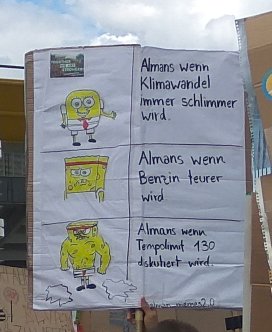 Almans wenn
Klimawandel
immer schlimmer
wird.
Almans wenn
Benzin teurer
wird
Almans wenn
Tempolimit 130
diskutiert wird.
alman_memes2.0